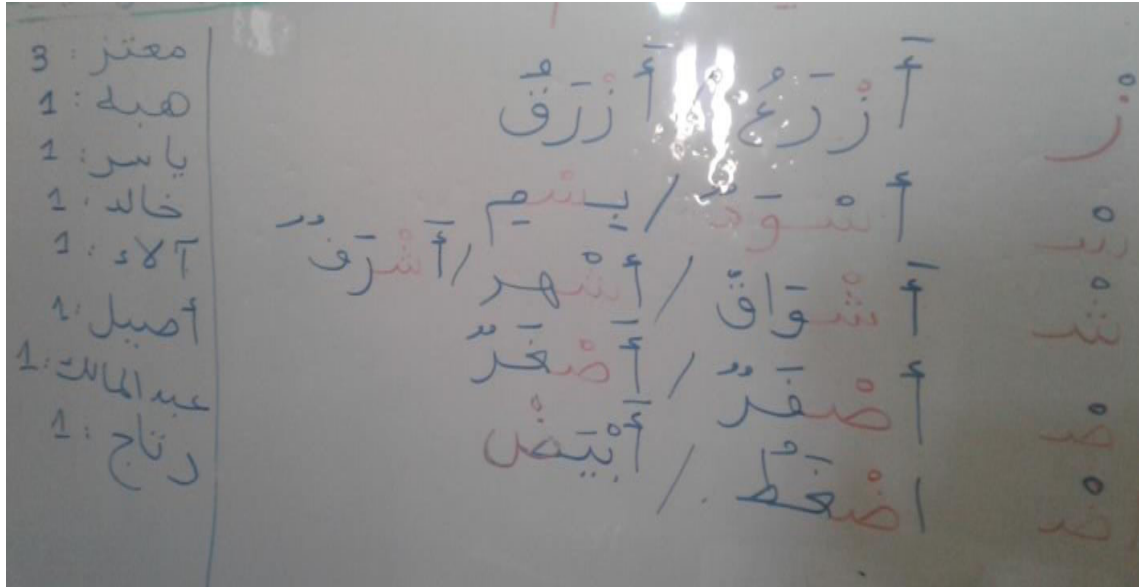 زْ أَزْرَعُ / أَزْرَقُ
سْ أَسْوَدٌ / يسْم
شْ أَشْوَاقٌ / أَشْهر / أَشْرَفٌ
صْ أَصْفَرٌ / أَصْغَرٌ
ضْ اضْغَطُ / أَبْيَضْ
معتز : 3
هبه : 1
ياسر : 1
خالد : 1
آلاء : 1
أصيل : 1
عبدالمالك : 1
رتاج : 1